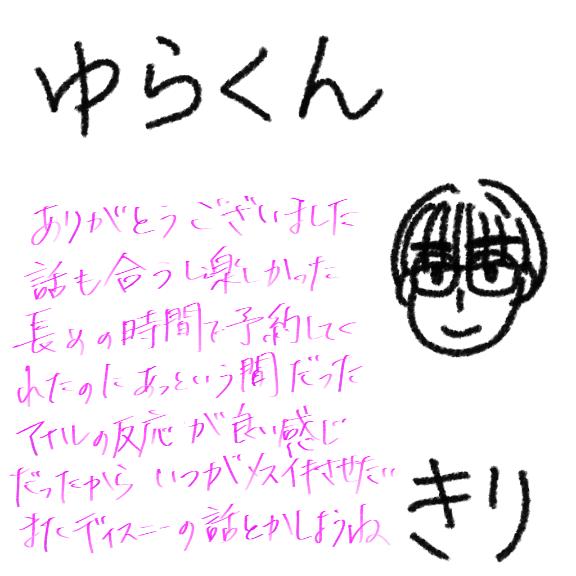 ゆらくん
ありがとうございました
話も合うし楽しかった
長めの時間で予約してく
れたのにあっという間だった
アナルの反応が良い感じ
だったから いつかメスイキさせたい
またディスニーの話とかしようね
きり